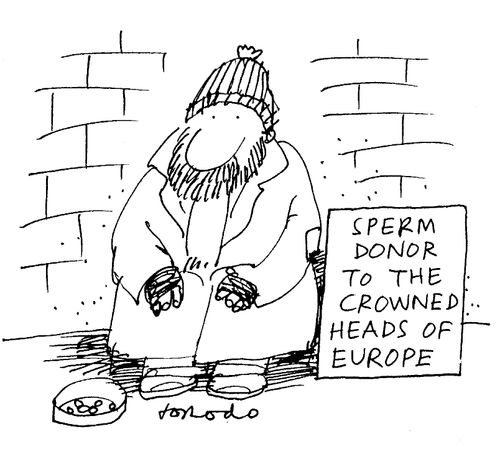 SPERM
DONOR
TO THE
CROWNED
HEADS OF
EUROPE